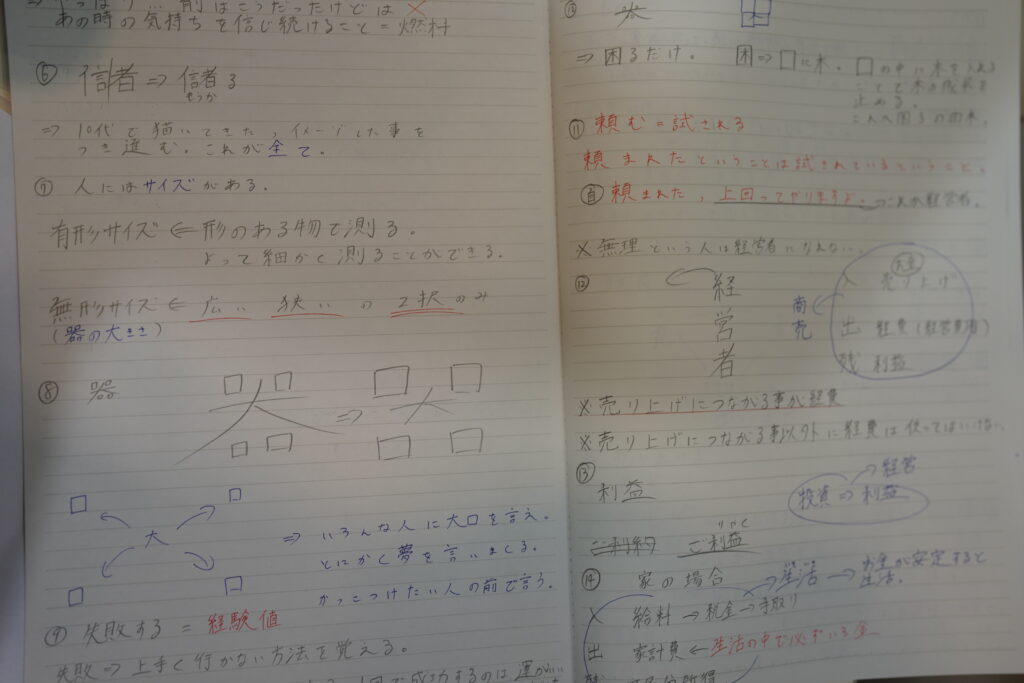 あの時の気持ちを信じ続けること = 燃料
⑥ 信者 ⇒ 信者る
もうか
⇒ 10代で描いてきた、イメージした事を
つき進む。これが全て。
⑦ 人にはサイズがある。
有形サイズ ⇐ 形のある物で測る。
よって細かく測ることができる。
無形サイズ ⇐ 広い 狭い の2択のみ
(器の大きさ)
⑧ 器
器 ⇒ 大
大
⇒ いろんな人に大口を言え。
とにかく夢を言いまくる。
かっこつけたい人の前で言う。
⑨ 失敗する = 経験値
失敗 ⇒ 上手く行かない方法を覚える。
⇒ 困るだけ。 困 ⇒ 口に木。口の中に木を入れる
ことで木の成長を
止める。
これが困るの由来。
⑪ 頼む = 試される
頼まれたということは試されているということ。
頼まれた、上回ってやりますよ。
これが経営者。
※ 無理という人は経営者になれない。
⑫ 経営者
商売
入 売り上げ
出 経費(経営費
残 利益
※ 売り上げにつながる事が経費
※ 売り上げにつながる事以外に経費は使ってはいけない。
⑬ 利益
投資 ⇒ 利益 → 経営
りやく
ご利益
⑭ 家の場合
生活 → お金が安定すると
生活。
入 給料 → 税金 → 手取り
出 家計費 ← 生活の中で必ずいる金